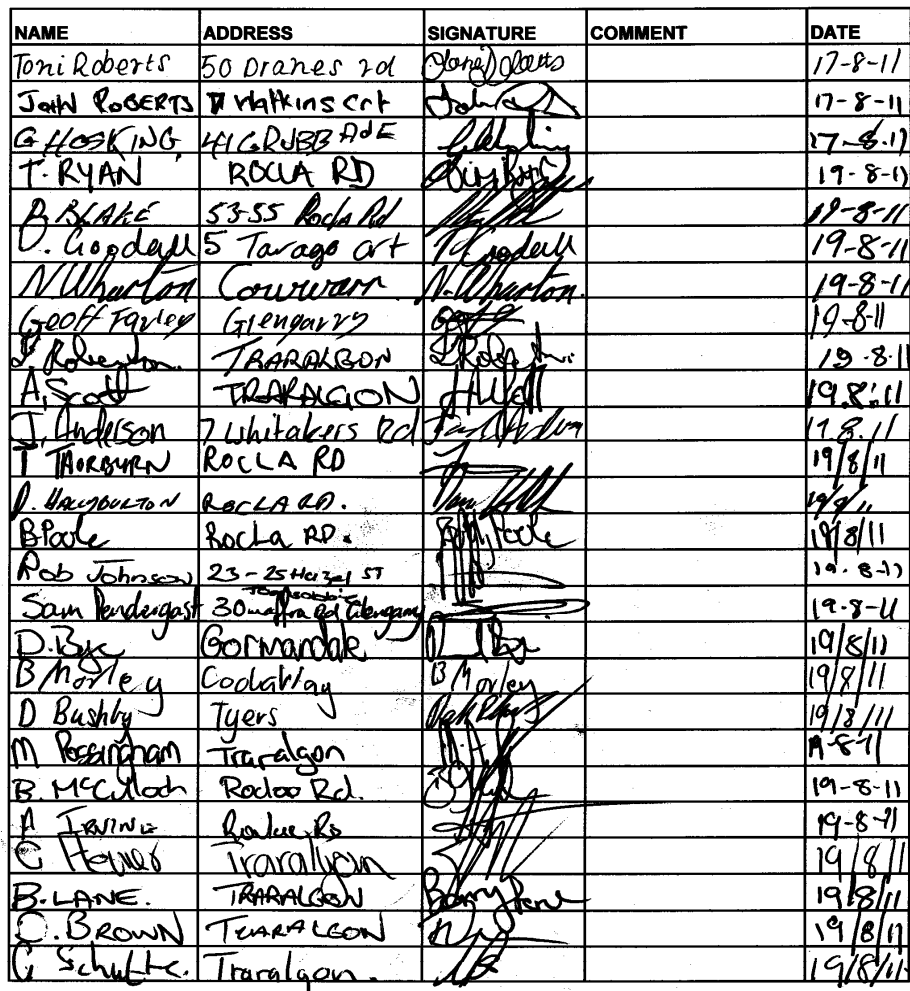 NAME ADDRESS SIGNATURE COMMENT DATE
Toni Roberts 50 Dranes rd 17-8-11
JOHN ROBERTS 7 Watkins crt 17-8-11
G HOSKING 41 GRUBB AdE 17-8-11
T. RYAN ROCLA RD 19-8-11
B BLAKE 53-55 Rocla Rd 19-8-11
D. Goodall 5 Tarago crt 19-8-11
N Wharton Cowwarr N. Wharton. 19-8-11
Geoff Farley Glengarry 19-8-11
TRARALGON 19-8-11
A. Scott TRARALGON 19.8.11
J. Anderson 7 Whitakers Rd 19.8.11
T THORBURN ROCLA RD 19/8/11
D. HALLYBURTON ROCLA RD. 19/8/11
B Poole Rocla RD. 19/8/11
Rob Johnson 23-25 Hazel ST 19-8-11
Sam Pendergast 30 maffra Rd Glengarry 19-8-11
D. Bye Gormandale 19/8/11
B Morley Coolarlay B Morley 19/8/11
D Bushby Tyers 19/8/11
M Possingham Traralgon 19-8-11
B. McCulloch Rocloo Rd. 19-8-11
A IRVING 19-8-11
C Traralgon 19/8/11
B. LANE. TRARALGON Barry Lane 19/8/11
D. BROWN TRARALGON 19/8/11
G Schultz. Traralgon. 19/8/11